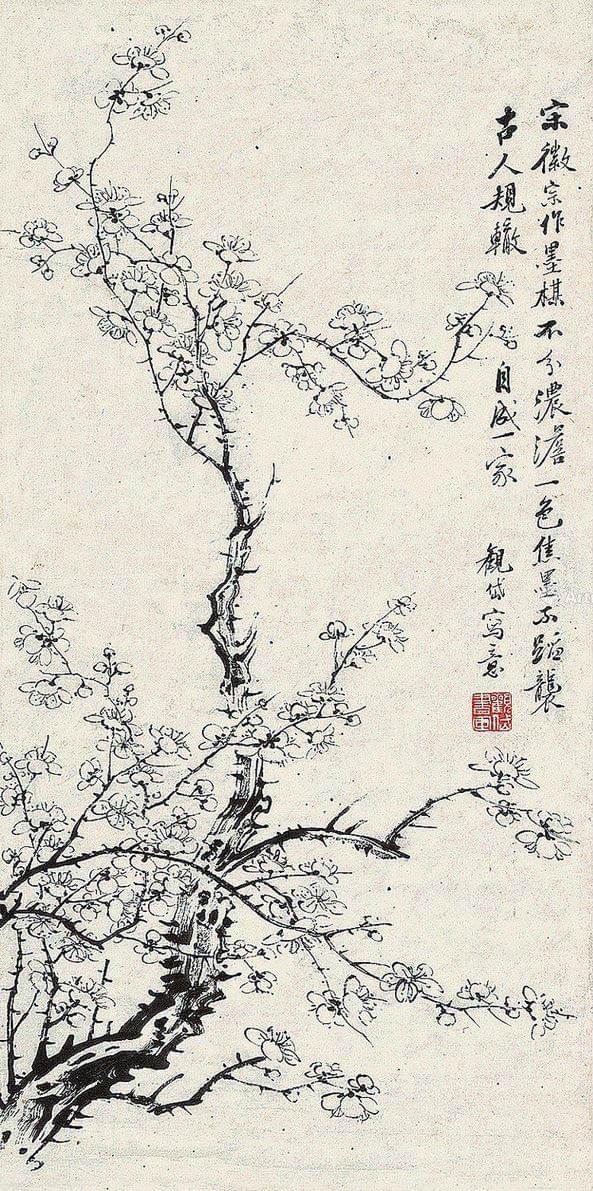 宋徽宗作墨楳不分濃澹一色焦墨不蹈襲
古人規轍 自成一家
觀岱寫意
觀岱書畫